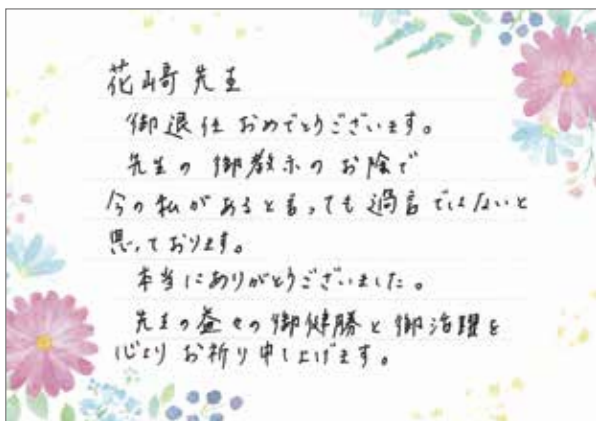 花﨑先生
御退任おめでとうございます。
先生の御教示のお陰で
今の私があると言っても過言ではないと
思っております。
本当にありがとうございました。
先生の益々の御健勝と御活躍を
心よりお祈り申し上げます。